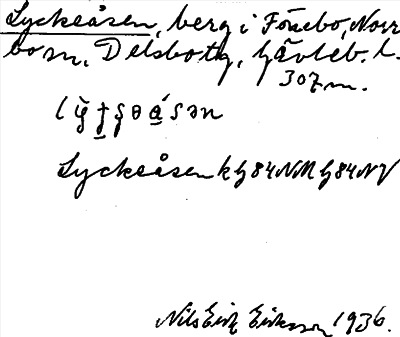 Lyckeåsen, berg i Fönebo, Norr
bo sn, Delsbo tg, Gävleb. l.
307 m.
Lyckeåsen k G 84 NM G 84 NV
Nils Erik Eriksson 1936.